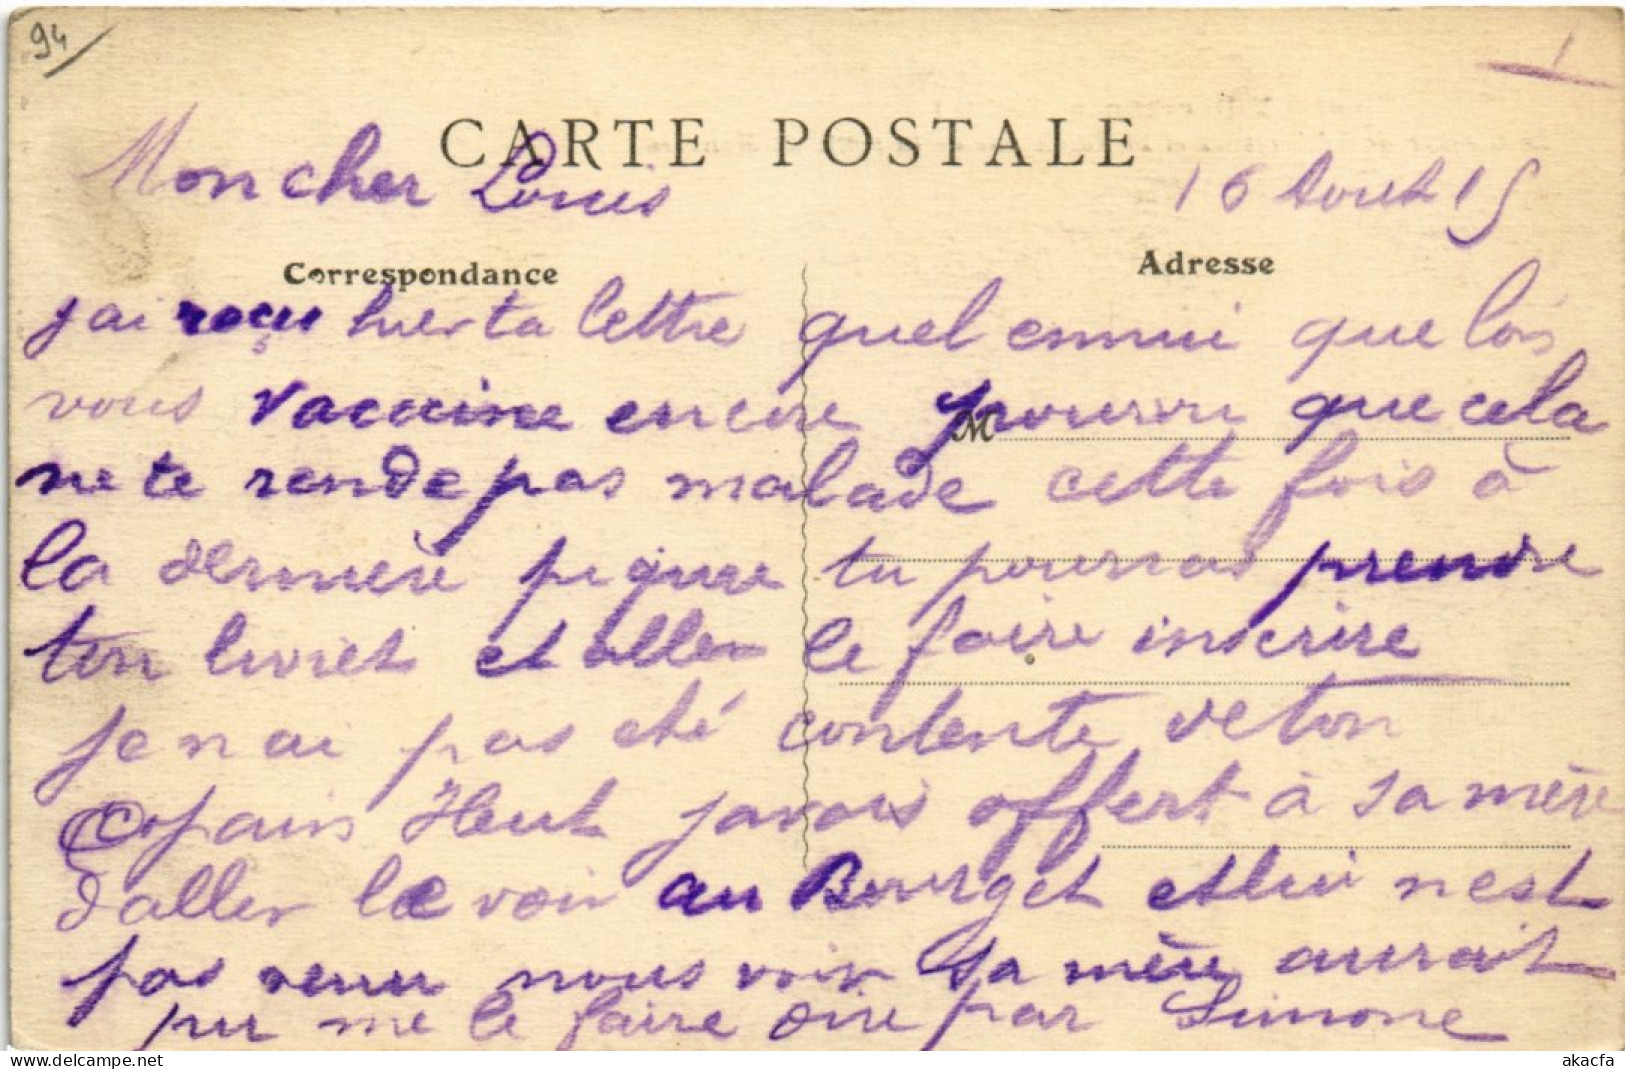 94
CARTE POSTALE
Mon cher Louis
16 Aout 15
Correspondance
Adresse
jai reçu hier ta lettre quel ennui que lon
vous vaccine encore pourvu que cela
M
ne te rende pas malade cette fois à
la dernière piqure tu pourras prendre
ton livret et aller le faire inscrire
je nai pas été contente de ton
Copain javais offert à sa mère
daller le voir au Bourget et lui nest
pas venu nous voir sa mère aurait
pu me le faire dire par Simone
delcampe.net
akacfa